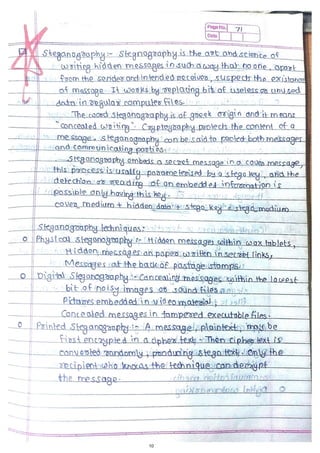 Page No. 71
Date
Steganography :- Stegnography is the art and science of
writing hidden messages in such a way that no one, apart
from the sender and intended receiver, suspects the existance
of message. It works by replacing bit of useless or unused
data in regular computer files.
The word steganography is of greek origin and it means
"concealed writing" Cryptography protects the content of a
message. steganography can be said to protect both messages
and communicating parties.
Steganography embeds a secret message in a cover message,
this process is usually parameterized by a stego key, and the
detection or reading of an embedded information is
possible only having this key.
cover medium + hidden data + stego key = stego medium
Steganography techniques:
o Physical steganography :- Hidden messages within wax tablets,
Hidden messages on paper written in secret links,
Messages at the back of postage stamps.
o Digital Steganography :- Concealing messages within the lowest
bit of noisy images or sound files
Pictures embedded in video material;
Concealed messages in tampered executable files.
o Printed Steganography :- A message, plaintext, may be
first encrypted in a cipher text - Then cipher text is
converted randomly, producing stego text. Only the
recipient who knows the technique can decrypt
the message.
10